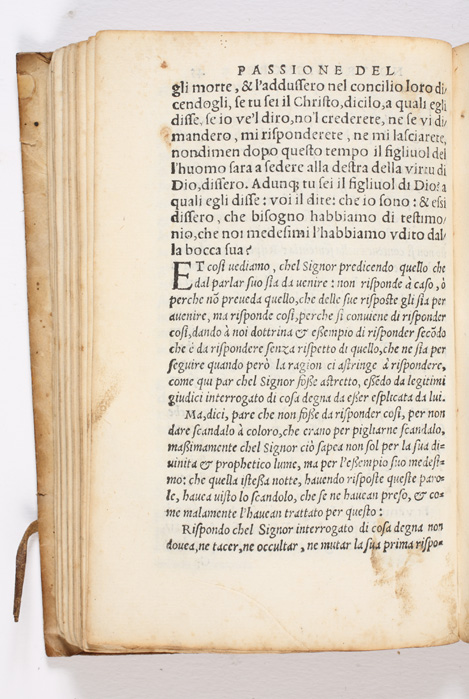 PASSIONE DEL
gli morte, & l'addussero nel concilio loro di/
cendogli, se tu sei il Christo, dicilo, a quali egli
disse, se io ve'l diro, no'l crederete, ne se vi di/
mandero, mi risponderete, ne mi lasciarete,
nondimen dopo questo tempo il figliuol del
l'huomo sara a sedere alla destra della virtu di
Dio, dissero. Adunq; tu sei il figliuol di Dio? a
quali egli disse: voi il dite: che io sono: & essi
dissero, che bisogno habbiamo di testimo/
nio, che noi medesimi l'habbiamo vdito dal/
la bocca sua?
ET cosi uediamo, chel Signor predicendo quello che
dal parlar suo sia da uenire: non risponde à caso, ò
perche nō preueda quello, che delle sue risposte gli sia per
auenire, ma risponde cosi, perche si conuiene di risponder
cosi, dando à noi dottrina & essempio di risponder secōdo
che è da rispondere senza rispetto di quello, che ne sia per
seguire quando però la ragion ci astringe à rispondere,
come qui par chel Signor fosse astretto, essēdo da legitimi
giudici interrogato di cosa degna da esser esplicata da lui.
Ma, dici, pare che non fosse da risponder cosi, per non
dare scandalo à coloro, che erano per pigliarne scandalo,
massimamente chel Signor ciò sapea non sol per la sua di=
uinita & prophetico lume, ma per l'essempio suo medesi=
mo: che quella istessa notte, hauendo risposte queste paro=
le, hauea uisto lo scandolo, che se ne hauean preso, & co=
me malamente l'hauean trattato per questo:
Rispondo chel Signor interrogato di cosa degna non
douea, ne tacer, ne occultar, ne mutar la sua prima rispo=